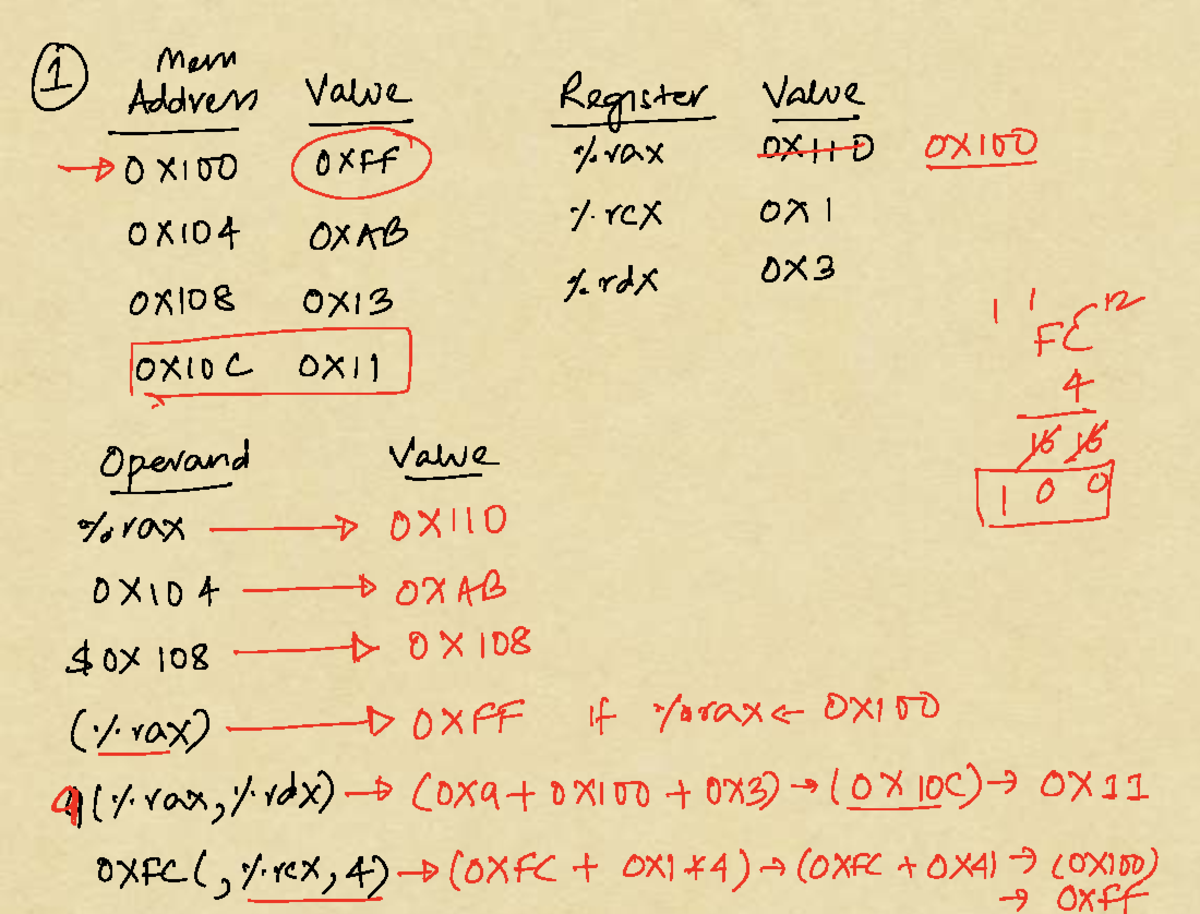 1 Mem
Address Value Register Value
0X100 0XFF %rax 0X110 0X100
0X104 0XAB %rcx 0X1
0X108 0X13 %rdx 0X3
0X10C 0X11
1 1
FC 12
4
16 16
1 0 0
Operand Value
%rax → 0X110
0X104 → 0XAB
$0X108 → 0X108
(%rax) → 0XFF if %rax ← 0X100
9(%rax, %rdx) → (0X9 + 0X100 + 0X3) → (0X10C) → 0X11
0XFC(, %rcx, 4) → (0XFC + 0X1*4) → (0XFC + 0X4) → (0X100)
→ 0XFF